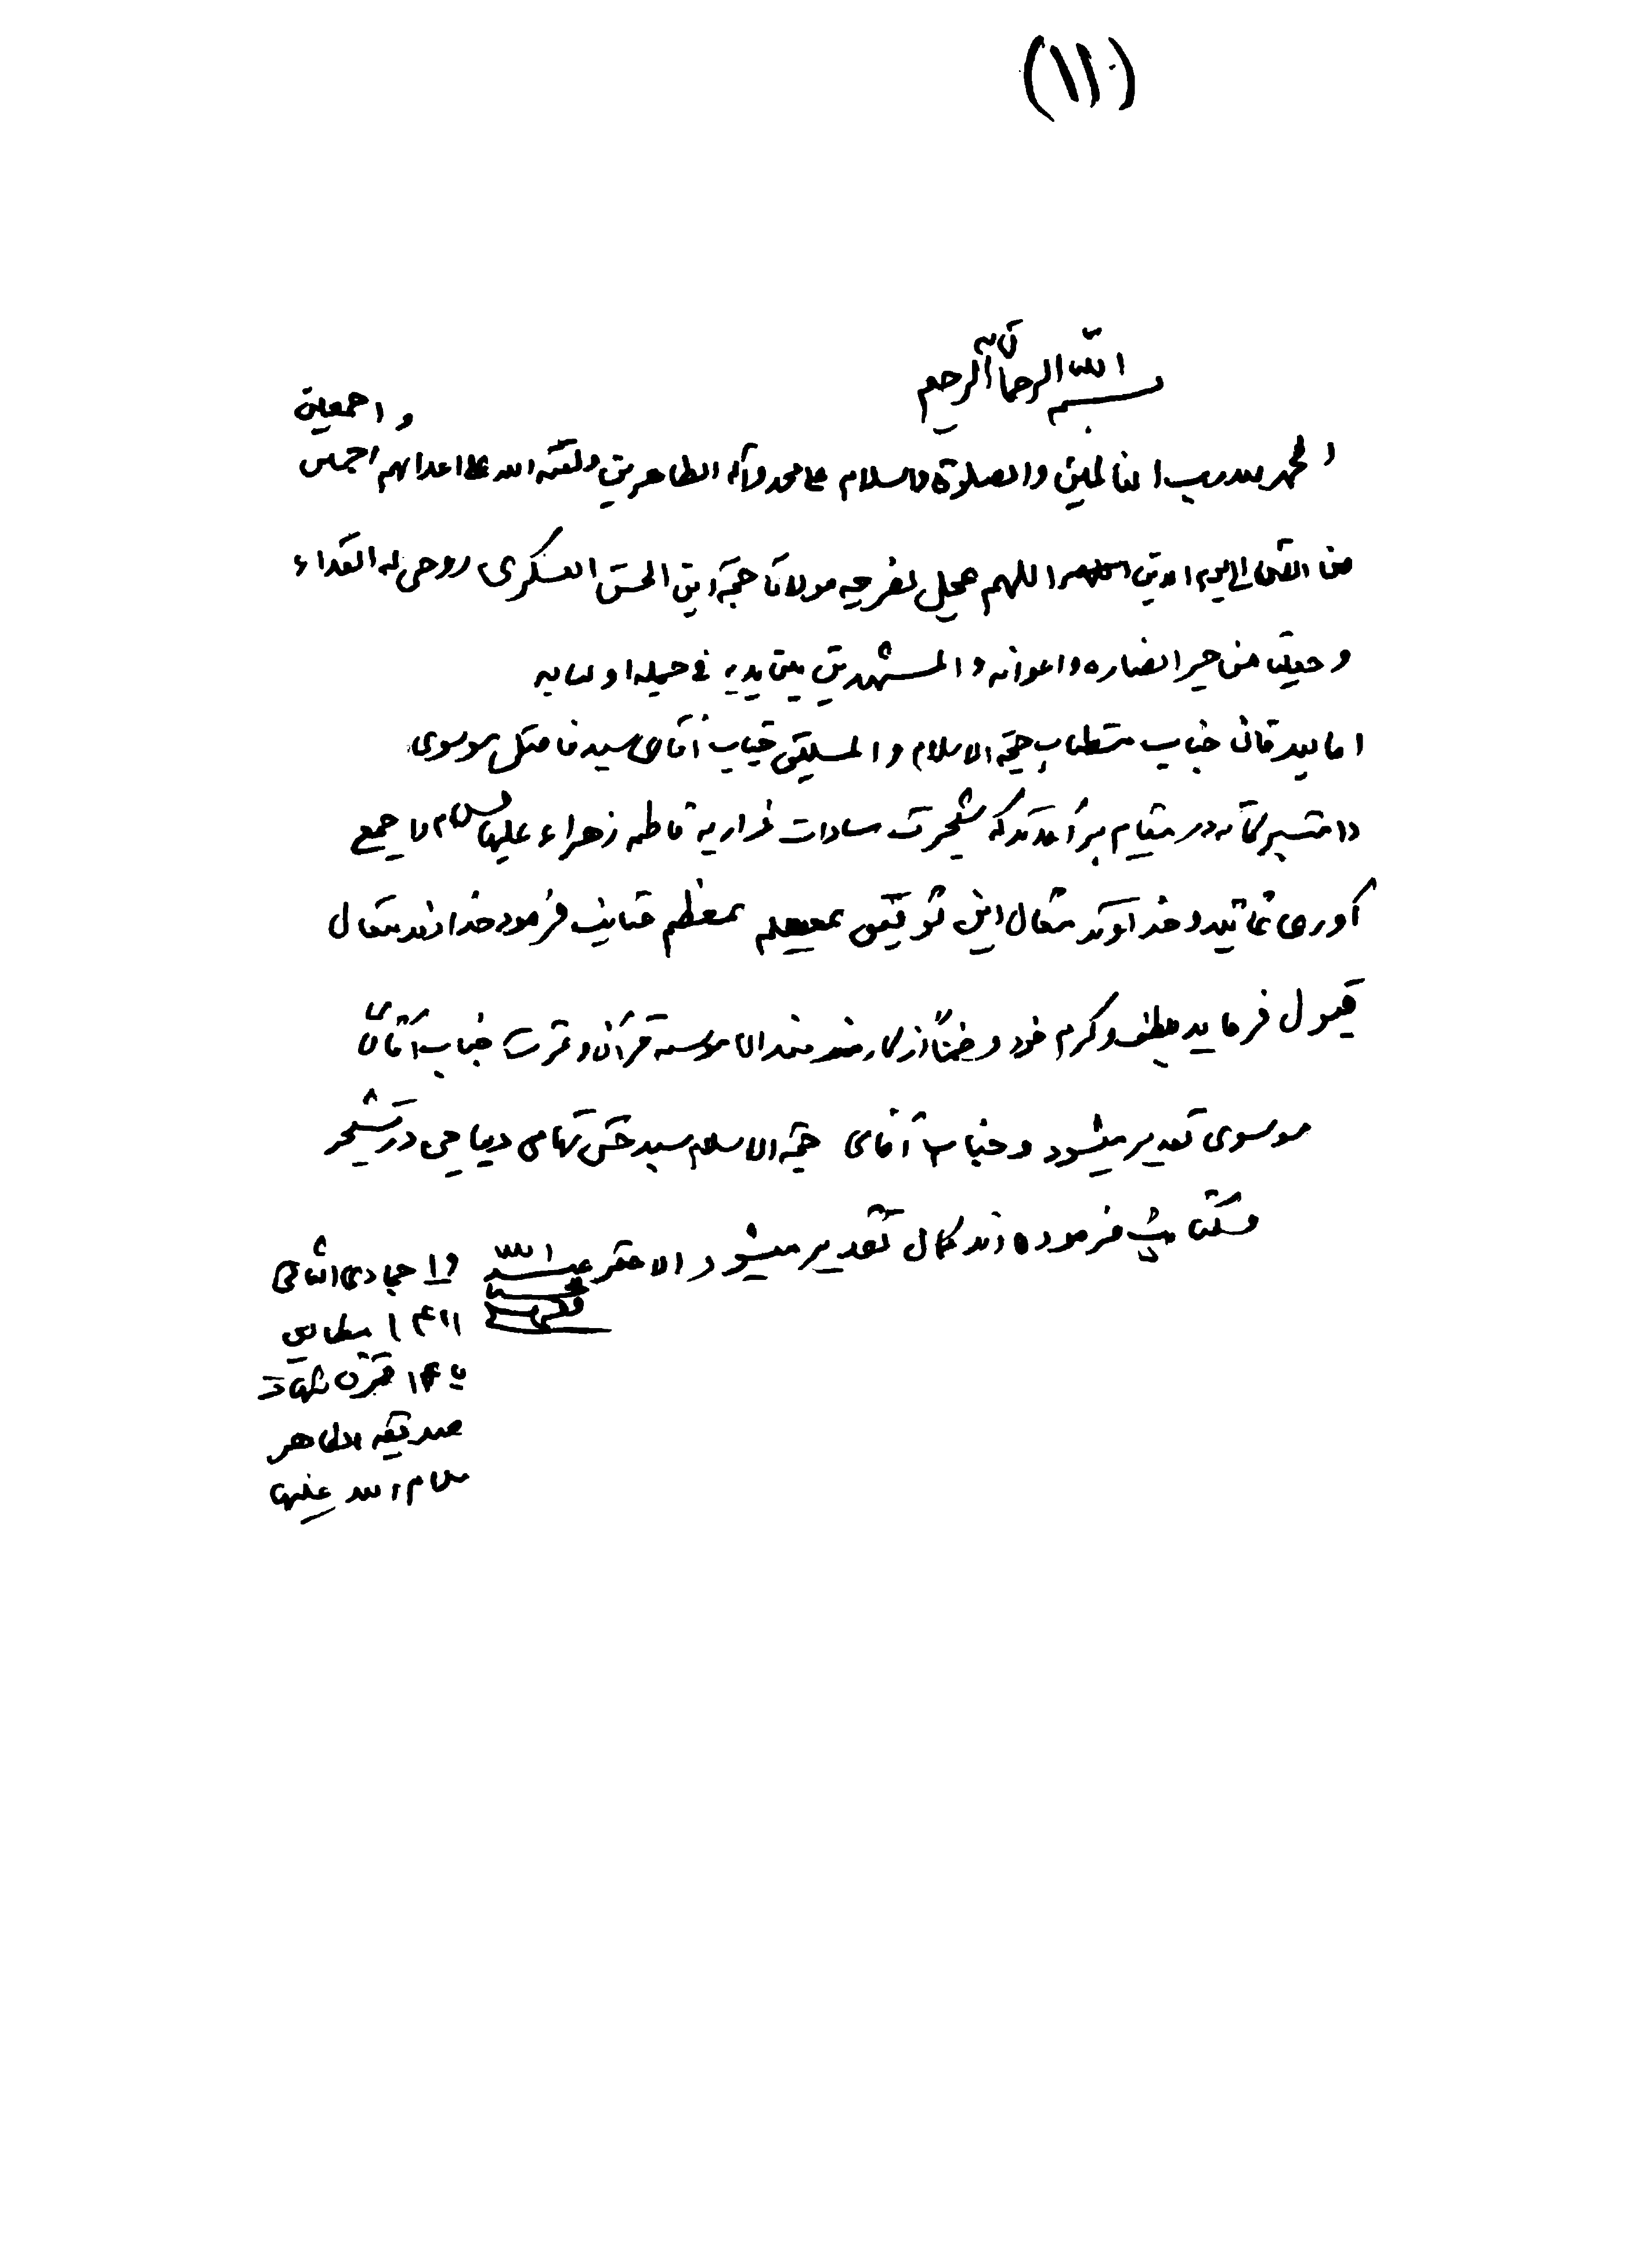 (۱۱۰)
بسم الله الرحمان الرحیم
و اجمعین
الحمد لله رب العالمین والصلوة والسلام علی محمد وآله الطاهرین ولعنة الله علی اعدائهم اجمعین
من الان الی یوم الدین اللهم عجل لفرجه مولانا حجة ابن الحسن العسکری روحی له الفداء
و جعلنا من خیر انصاره و اعوانه و المستشهدین بین یدیه فی جملة اولیائه
اما بعد فان جناب مستطاب حجة الاسلام و المسلمین جناب آقای سید فاضل موسوی
در مقام برآمدند که شجرت سادات ذراریه فاطمه زهراء علیها السلام را جمع
آوری نمائید و خداوند متعال این توفیق بمعظم عنایت فرمود خداوند متعال
قبول فرماید بلطف و کرم خود و ضمناً از کارمندان موسسه قرآن و عترت جناب آقای
موسوی تقدیر میشود و جناب آقای حجة الاسلام سید حسن تهامی دیباجی در شجر
فرموده اند کمال تقدیر میشود الاحقر عبد الله
۱۰ جمادی الثانی
۱۴۲۱ مطابق
با ۱۴ قرن شهادة
صدیقه الطاهر
سلام الله علیها